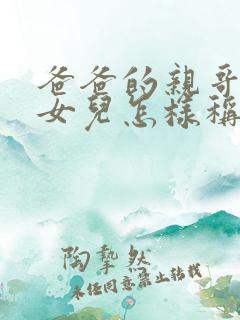 爸爸的親哥
女兒怎樣稱
陶摯然
未经同意禁止转载